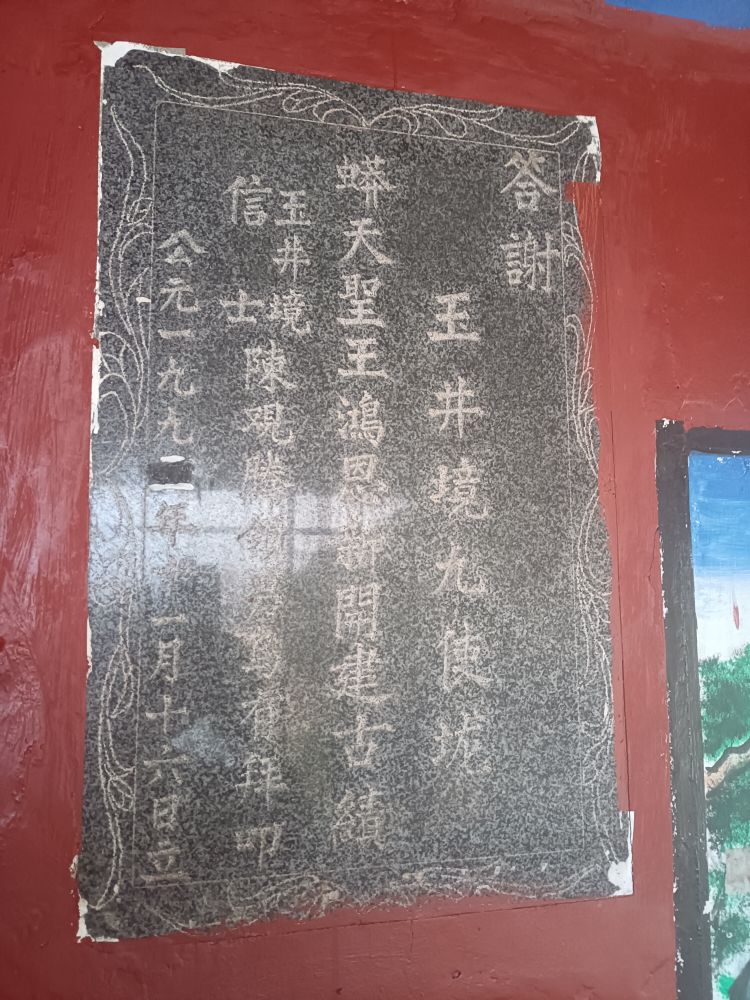 答謝
玉井境九使
蟒天聖王鴻恩新開建古績
玉井境
信士
陳勝拜叩
公元一九九年十一月十六日立